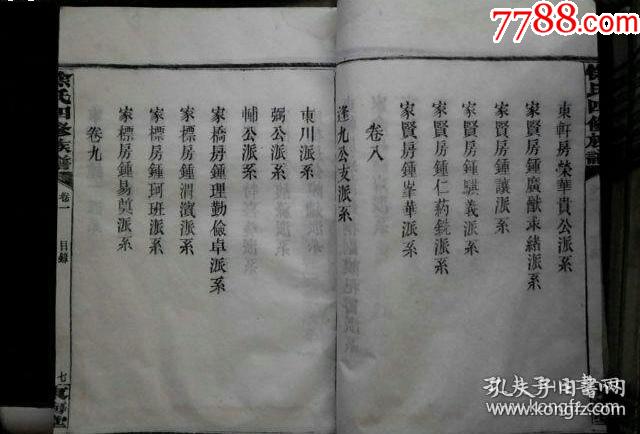 東軒房榮華貴公派系
家賢房鍾廣猷承緒派系
家賢房鍾讓派系
家賢房鍾騏義派系
家賢房鍾仁葯銑派系
家賢房鍾峯華派系
卷八
逢九公支派系
東川派系
弼公派系
輔公派系
家橋房鍾理勤儉卓派系
家標房鍾渭濱派系
家標房鍾珂班派系
家標房鍾易奠派系
卷九
氏四修族譜
卷一
目錄
七
7788.com
孔夫子旧书网
www.kongfz.com